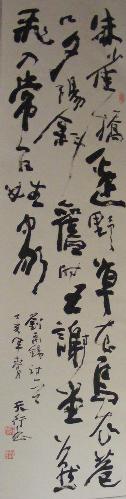 朱雀橋邊野草花烏衣巷
口夕陽斜舊時王謝堂前燕
飛入尋常百姓家
劉禹錫詩一首